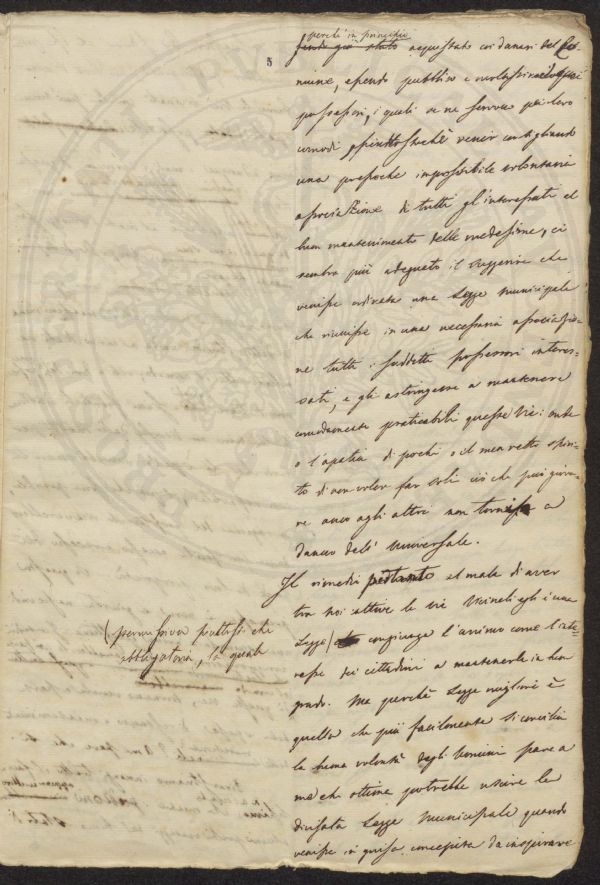 perchè in principio
5
fondo già stato acquistato coi danari del Co-
mune, essendo pubblico e moltissimi
possessori, i quali se ne servono pei loro
comodi piuttostochè venir consigliando
una pressochè impossibile volontaria
associazione di tutti gl'interessati al
buon mantenimento delle medesime, ci
sembra più adeguato il suggerire che
venisse ordinata una Legge Municipale
che riunisse in una necessaria associazio-
ne tutti i suddetti possessori interes-
sati, e gli astringesse a mantenere
comodamente praticabili queste Vie: onde
o l'apatia di pochi o il men retto spiri-
to di non voler far soli ciò che può giova-
re anco agli altri non torni a
danno dell'Universale.
Il rimedio pertanto al male di aver
tra noi cattive le vie Vicinali egli è una
(permissiva piuttosto che
obbligatoria, la quale
Legge/ congiunga l'animo come l'inte-
resse dei cittadini a mantenerle in buon
grado. Ma perchè Legge migliore è
quella che più facilmente si concilia
la buona volontà degli uomini pare a
me che ottima potrebbe uscire la
divisata Legge Municipale quando
venisse in guisa concepita da inspirare